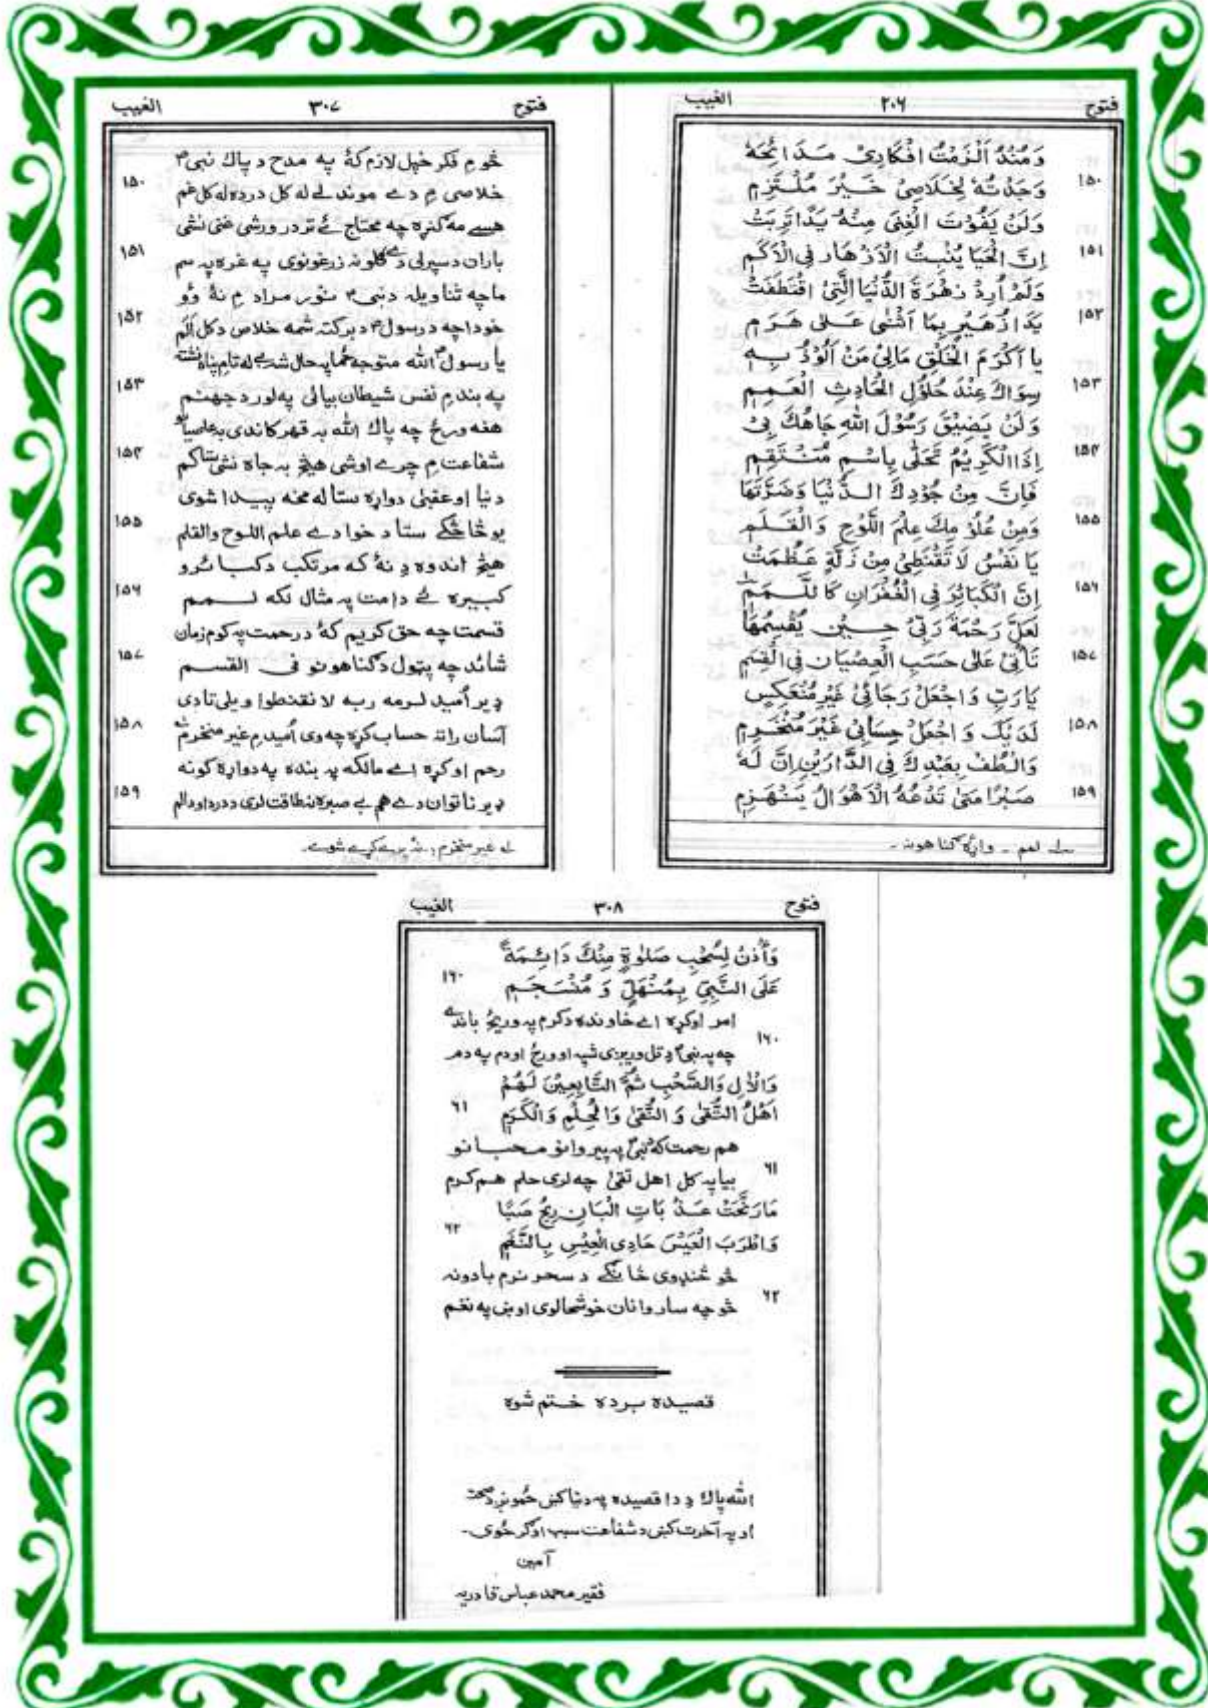 فتوح ۳۰۶ الغيب
وَمُنْذُ اَلْزَمْتُ اَفْكَارِیْ مَدَائِحَهٗ
وَجَدْتُهٗ لِخَلَاصِیْ خَيْرَ مُلْتَزِمٖ ۱۵۰
وَلَنْ يَّفُوْتَ الْغِنٰى مِنْهُ يَدًا تَرِبَتْ
اِنَّ الْحَيَا يُنْبِتُ الْاَزْهَارَ فِی الْاَكَمٖ ۱۵۱
وَلَمْ اُرِدْ زَهْرَةَ الدُّنْيَا الَّتِیْ اقْتَطَفَتْ
يَدَا زُهَيْرٍ بِمَا اَثْنٰى عَلٰى هَرَمٖ ۱۵۲
يا اَكْرَمَ الْخَلْقِ مَالِیْ مَنْ اَلُوْذُ بِهٖ
سِوَاكَ عِنْدَ حُلُوْلِ الْحَادِثِ الْعَمِمٖ ۱۵۳
وَلَنْ يَضِيْقَ رَسُوْلَ اللهِ جَاهُكَ بِیْ
اِذَا الْكَرِيْمُ تَحَلّٰى بِاسْمِ مُنْتَقِمٖ ۱۵۴
فَاِنَّ مِنْ جُوْدِكَ الدُّنْيَا وَضَرَّتَهَا
وَمِنْ عُلُوْمِكَ عِلْمَ اللَّوْحِ وَالْقَلَمٖ ۱۵۵
يَا نَفْسُ لَا تَقْنَطِیْ مِنْ زَلَّةٍ عَظُمَتْ
اِنَّ الْكَبَائِرَ فِی الْغُفْرَانِ كَاللَّمَمٖ ۱۵۶
لَعَلَّ رَحْمَةَ رَبِّیْ حِيْنَ يَقْسِمُهَا
تَأْتِیْ عَلٰى حَسَبِ الْعِصْيَانِ فِی الْقِسَمٖ ۱۵۷
يَارَبِّ وَاجْعَلْ رَجَائِیْ غَيْرَ مُنْعَكِسٍ
لَدَيْكَ وَاجْعَلْ حِسَابِیْ غَيْرَ مُنْخَرِمٖ ۱۵۸
وَالْطُفْ بِعَبْدِكَ فِی الدَّارَيْنِ اِنَّ لَهٗ
صَبْرًا مَتٰى تَدْعُهُ الْاَهْوَالُ يَنْهَزِمٖ ۱۵۹
لمم ـ واړه ګناهونه ـ
فتوح ۳۰۷ الغيب
څو مِ فکر خپل لازم کهٔ په مدح د پاك نبی
خلاصی مِ دے موندلے له کل درده له کل غم ۱۵۰
هسے مه ګنړه چه محتاج ئے تر در ورشی غنی نشی
باران د سپرلی دے ګلونه زرغونوی په غره په سم ۱۵۱
ما چه ثنا ویله د نبی نور مراد مِ نهٔ وؤ
خو دا چه د رسول د برکته شمه خلاص د کل اَلَم ۱۵۲
يا رسول الله متوجه
په بند مِ نفس شيطان بیائی په لور د جهنم ۱۵۳
هغه ورځ چه پاك الله به قهر کاندی په
شفاعت مِ چرے اوشی هیڅ به جاه نشی ستا کم ۱۵۴
دنیا او عقبٰی دواړه ستا له مخه پیدا شوی
یو څاڅکے ستا د خوا دے علم اللوح والقلم ۱۵۵
هیڅ اندوه دِ نهٔ که مرتکب د کبائرو
کبیره ئے دامت په مثال لکه لمم ۱۵۶
قسمت چه حق کریم کهٔ د رحمت په کوم زمان
شائد چه پهٔول د ګناهونو فی القسم ۱۵۷
ډیر اُمید لرمه ربه لا تقنطوا ویلی تا دی
آسان راته حساب کړه چه وی اُمید مِ غیر منخرم ۱۵۸
رحم اوکړه اے مالکه په بنده په دواړه کونه
ډیر ناتوان دے هم بے صبره نهٔ طاقت لری د درد او د الم ۱۵۹
غیر منخرم، نهٔ پرے کړے شوے۔
فتوح ۳۰۸ الغيب
وَأْذَنْ لِسُحْبِ صَلٰوةٍ مِنْكَ دَائِمَةً
عَلَى النَّبِیِّ بِمُنْهَلٍّ وَ مُنْسَجَمٖ ۱۶۰
امر اوکړه اے خاونده د کرم په وریځ باندے
چه په نبی دِ تل وریږی شپه او ورځ او دم په دم ۱۶۰
وَالْاٰلِ وَالصَّحْبِ ثُمَّ التَّابِعِيْنَ لَهُمْ
اَهْلُ التُّقٰى وَ النُّقٰى وَالْحِلْمِ وَالْكَرَمٖ ۶۱
هم رحمت که د نبی په پیروانو محبانو
بیا په کل اهل تقٰی چه لری حلم هم کرم ۶۱
مَارَنَّحَتْ عَذَبَاتِ الْبَانِ رِيْحُ صَبًا
وَاَطْرَبَ الْعِيْسَ حَادِی الْعِيْسِ بِالنَّغَمٖ ۶۲
څو څنډوی څانګے د سحر نرم بادونه
څو چه ساروانان خوشحالوی اوښی په نغم ۶۲
قصیده برده ختم شوه
الله پاك دِ دا قصیده په دنیا کښی څمونږ د صحت
او په آخرت کښی د شفاعت سبب اوګرځوی۔
آمین
فقیر محمد عباس قادریه